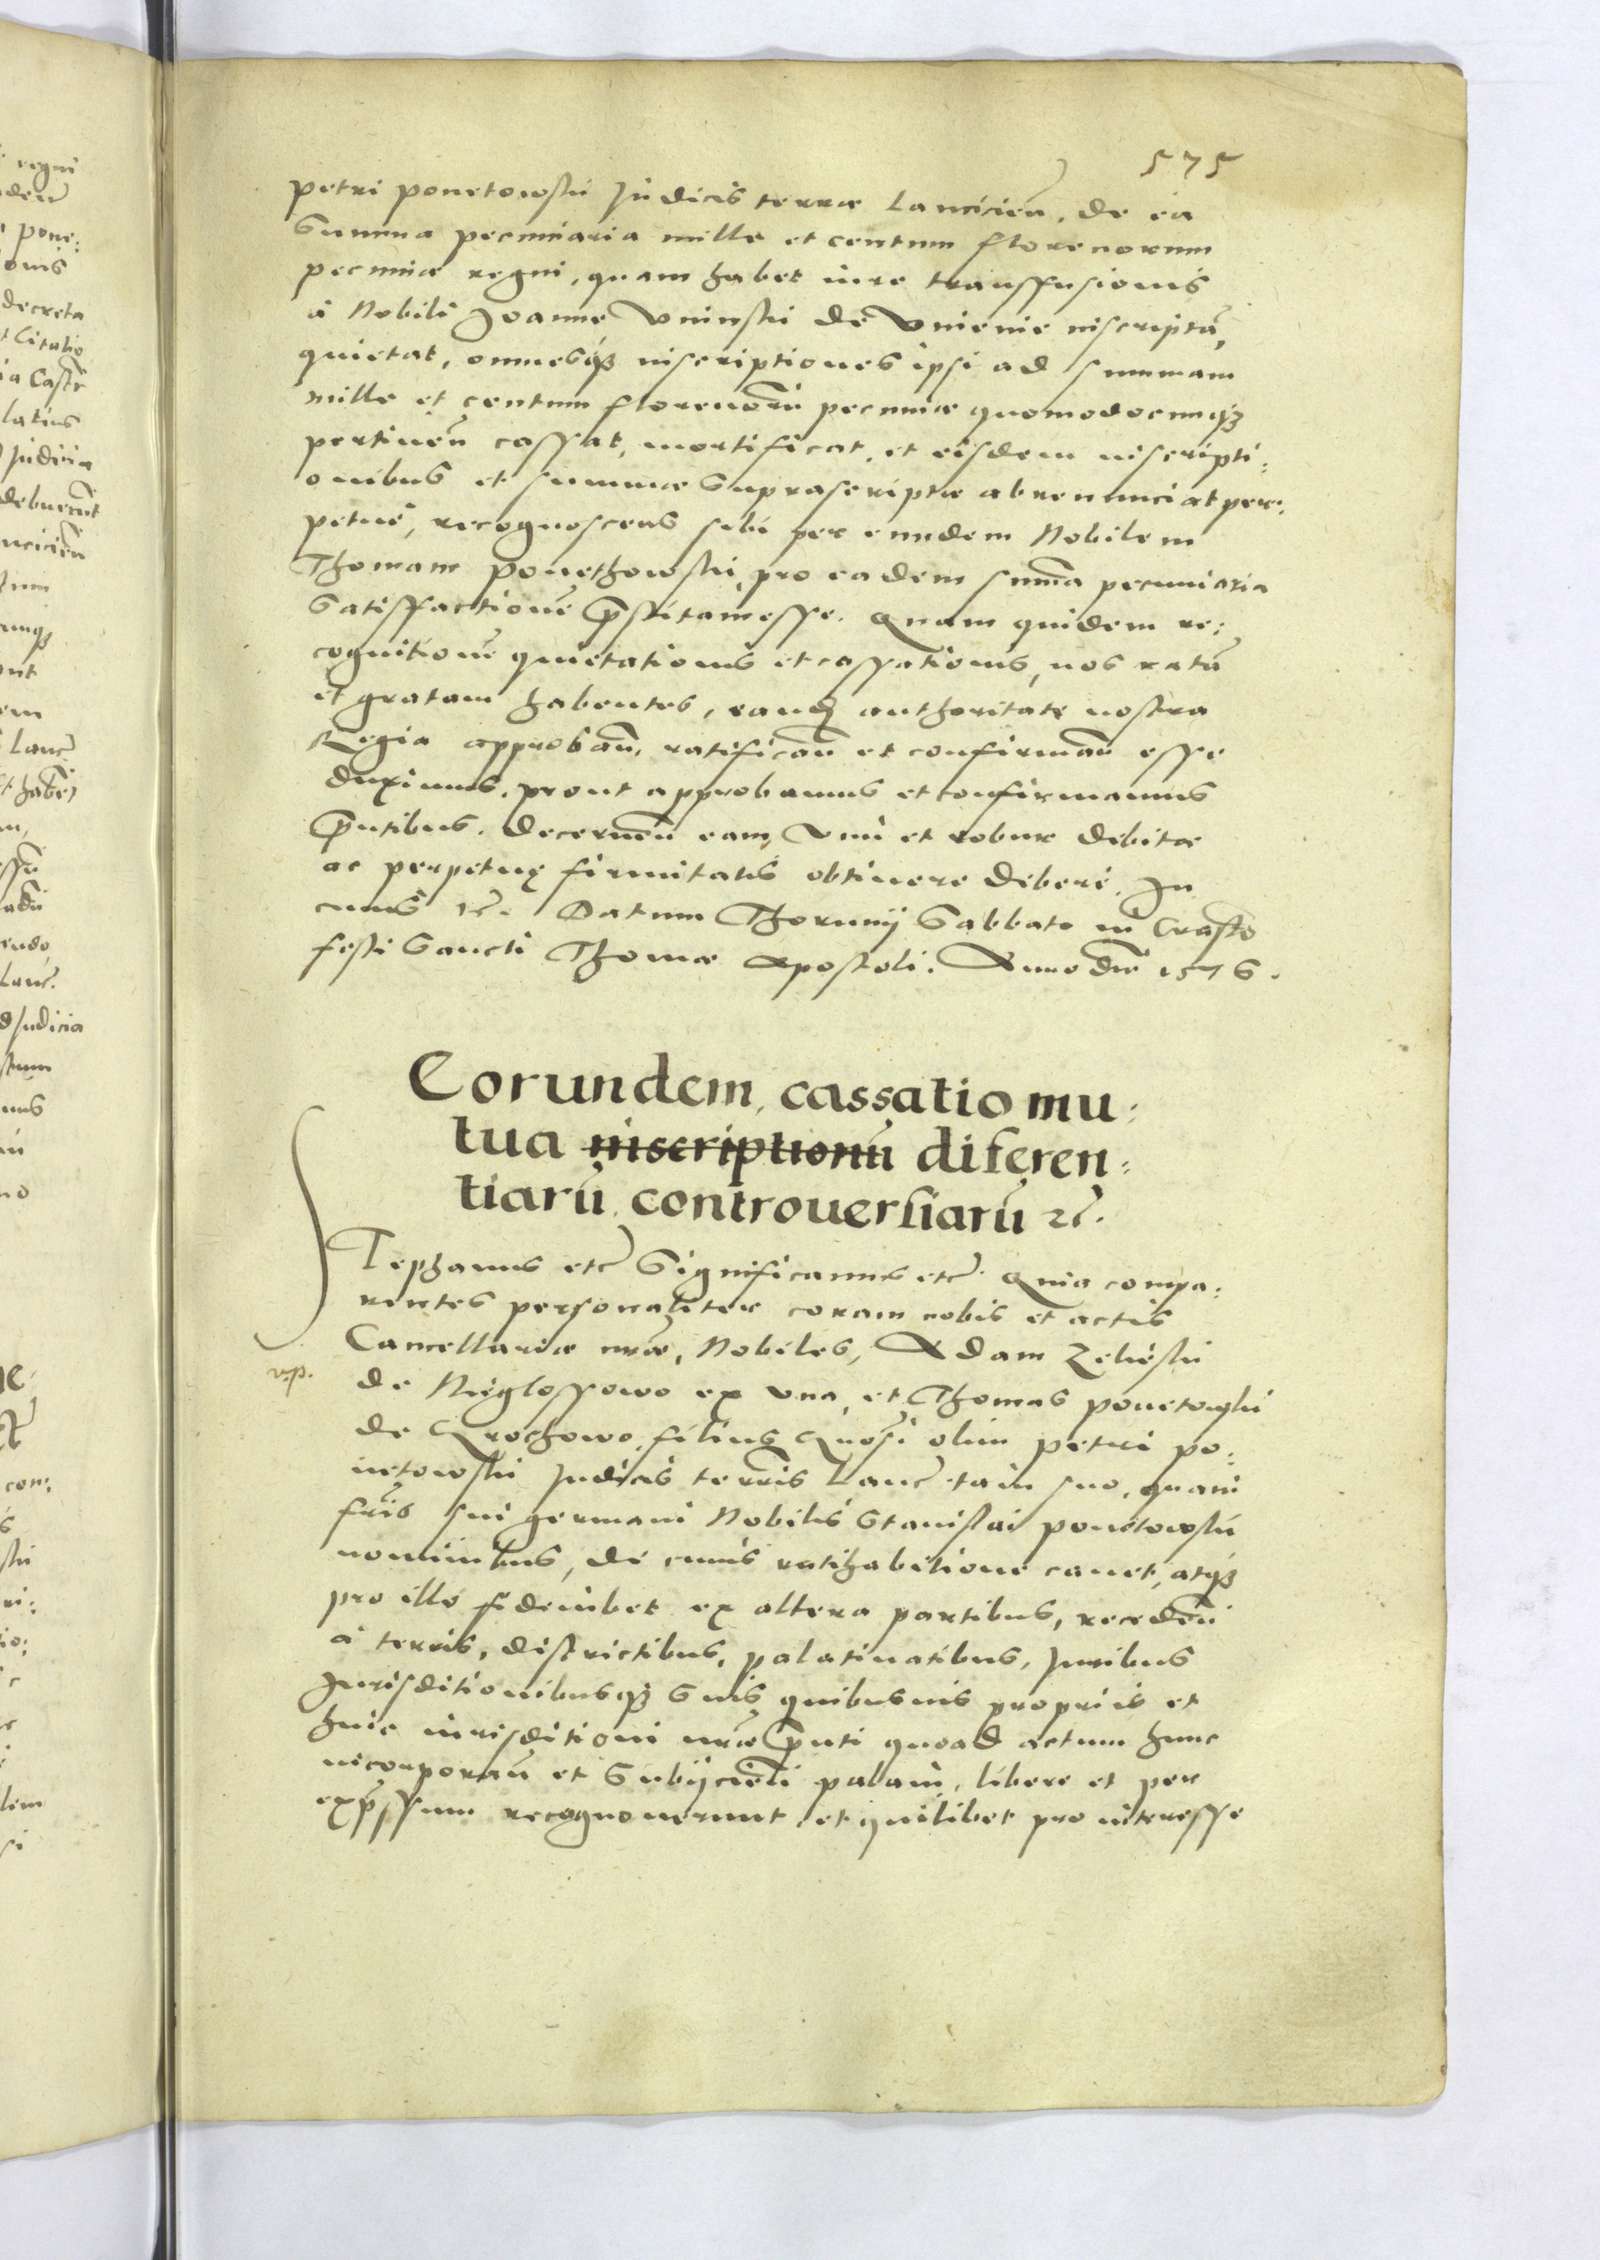 575
petri Ponetowski Judicis terræ Lanciciens̃. de ea
Summa pecuniaria mille et centum florenorum
pecuniæ regni, quam habet iure transfusionis
à Nobili Joanne Vninski de Vnienie inscriptã,
quietat, omnesq3 inscriptiones ipsi ad summam
mille et centum florenorũ pecuniæ quomodocunq3
pertineñ cassat, mortificat, et eisdem inscripti:
onibus et summæ suprascriptæ abrenunciat per:
petuè, recognoscens sibi per eundem Nobilem
Thomam Ponethowski, pro eadem summa pecuniaria
satisfactionẽ p̃stitam esse. Quam quidem re:
cognitionẽ quietationis et cassationis, nos ratã
et gratam habentes, eandẽ authoritate nostra
Regia approbañ, ratificañ et confirmañ esse
duximus. prout approbamus et confirmamus
p̃ntibus. Decerneñ eam, vim et robur debitæ
ac perpetuę firmitatis obtinere debere. In
cuius rẽ. Datum Thorunij Sabbato in Crast̃o
festi Sancti Thomæ Apostoli. Anno dñi 1576.
Eorundem, cassatio mu:
tua inscriptionũ diferen:
tiarũ, controuersiarũ rẽ.
Stephanus etc̃ Significamus etc̃. Quia compa:
rentes personaliter coram nobis et actis
Cancellariæ nr̃æ, Nobiles, Adam Zeleski
v.p.
de Niglossowo ex vna, et Thomas Ponetowski
de Grochowo filius Gnosi olim petri Po:
netowski Judicis terris Lanc̃ tam suo, quam
fr̃is sui germani Nobilis Stanislai Ponetowski
nominibus, de cuius ratihabitione cauet, atq3
pro illo fideiubet ex altera partibus, recedeñ
à terris, districtibus, palatinatibus, Juribus
Jurisditionibusq3 suis quibusuis propriis et
huic iurisditioni nr̃æ p̃nti quoad actum hunc
incorporañ et subijcieñ palam, libere et per
exp̃ssum recognouerunt, et quilibet pro interesse